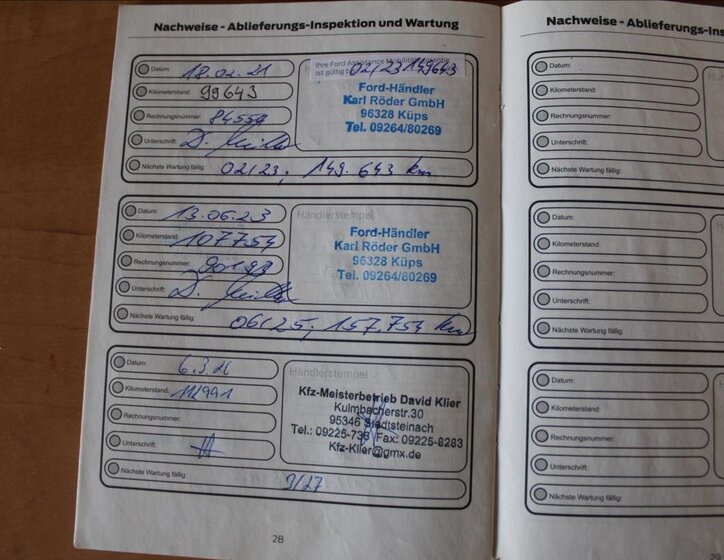 Nachweise - Ablieferungs-Inspektion und Wartung
Datum: 18.02.21
Kilometerstand: 99643
Rechnungsnummer: 84554
Unterschrift:
Nächste Wartung fällig: 02/23, 149.643 km
Ihre Ford Assistance Mobilitätsgarantie
ist gültig 02/23 149643
Ford-Händler
Karl Röder GmbH
96328 Küps
Tel. 09264/80269
Datum: 13.06.23
Kilometerstand: 107754
Rechnungsnummer:
Unterschrift:
Nächste Wartung fällig: 06/25, 157.754 km
Händlerstempel
Ford-Händler
Karl Röder GmbH
96328 Küps
Tel. 09264/80269
Datum: 6.3.26
Kilometerstand: 112991
Rechnungsnummer:
Unterschrift:
Nächste Wartung fällig: 3/27
Händlerstempel
Kfz-Meisterbetrieb David Klier
Kulmbacherstr.30
95346 Stadtsteinach
Tel.: 09225-736 Fax: 09225-8283
Kfz-Klier@gmx.de
28
Nachweise - Ablieferungs-Ins
Datum:
Kilometerstand:
Rechnungsnummer:
Unterschrift:
Nächste Wartung fällig:
Datum:
Kilometerstand:
Rechnungsnummer:
Unterschrift:
Nächste Wartung fällig:
Datum:
Kilometerstand:
Rechnungsnummer:
Unterschrift:
Nächste Wartung fällig: